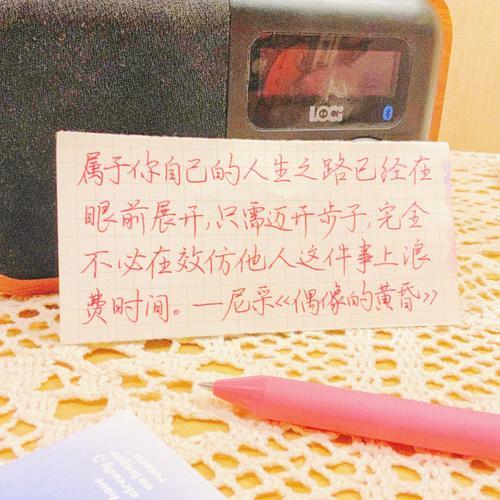 LOCI
属于你自己的人生之路已经在
眼前展开,只需迈开步子,完全
不必在效仿他人这件事上浪
费时间。—尼采《偶像的黄昏》
have
already :)
no longer
return